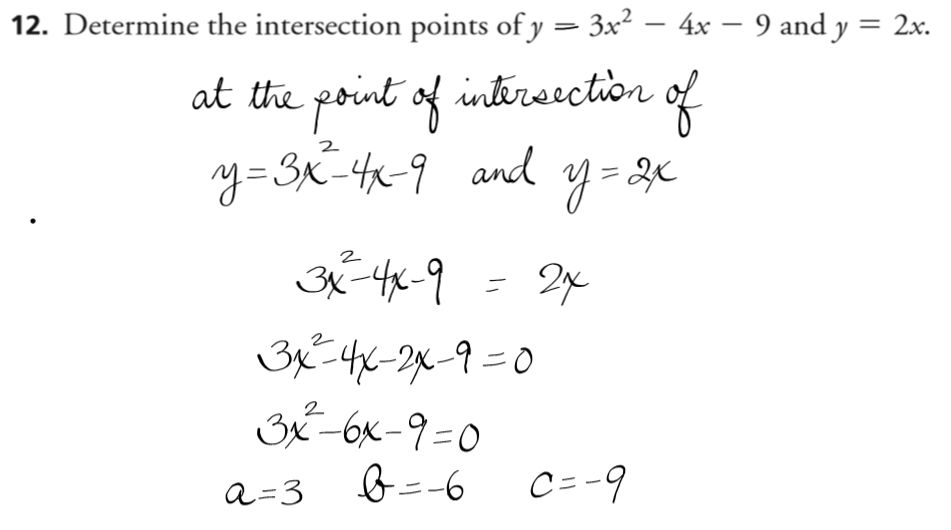 12. Determine the intersection points of y = 3x² − 4x − 9 and y = 2x.
at the point of intersection of
y=3x²-4x-9 and y=2x
3x²-4x-9 = 2x
3x²-4x-2x-9=0
3x²-6x-9=0
a=3 b=-6 c=-9